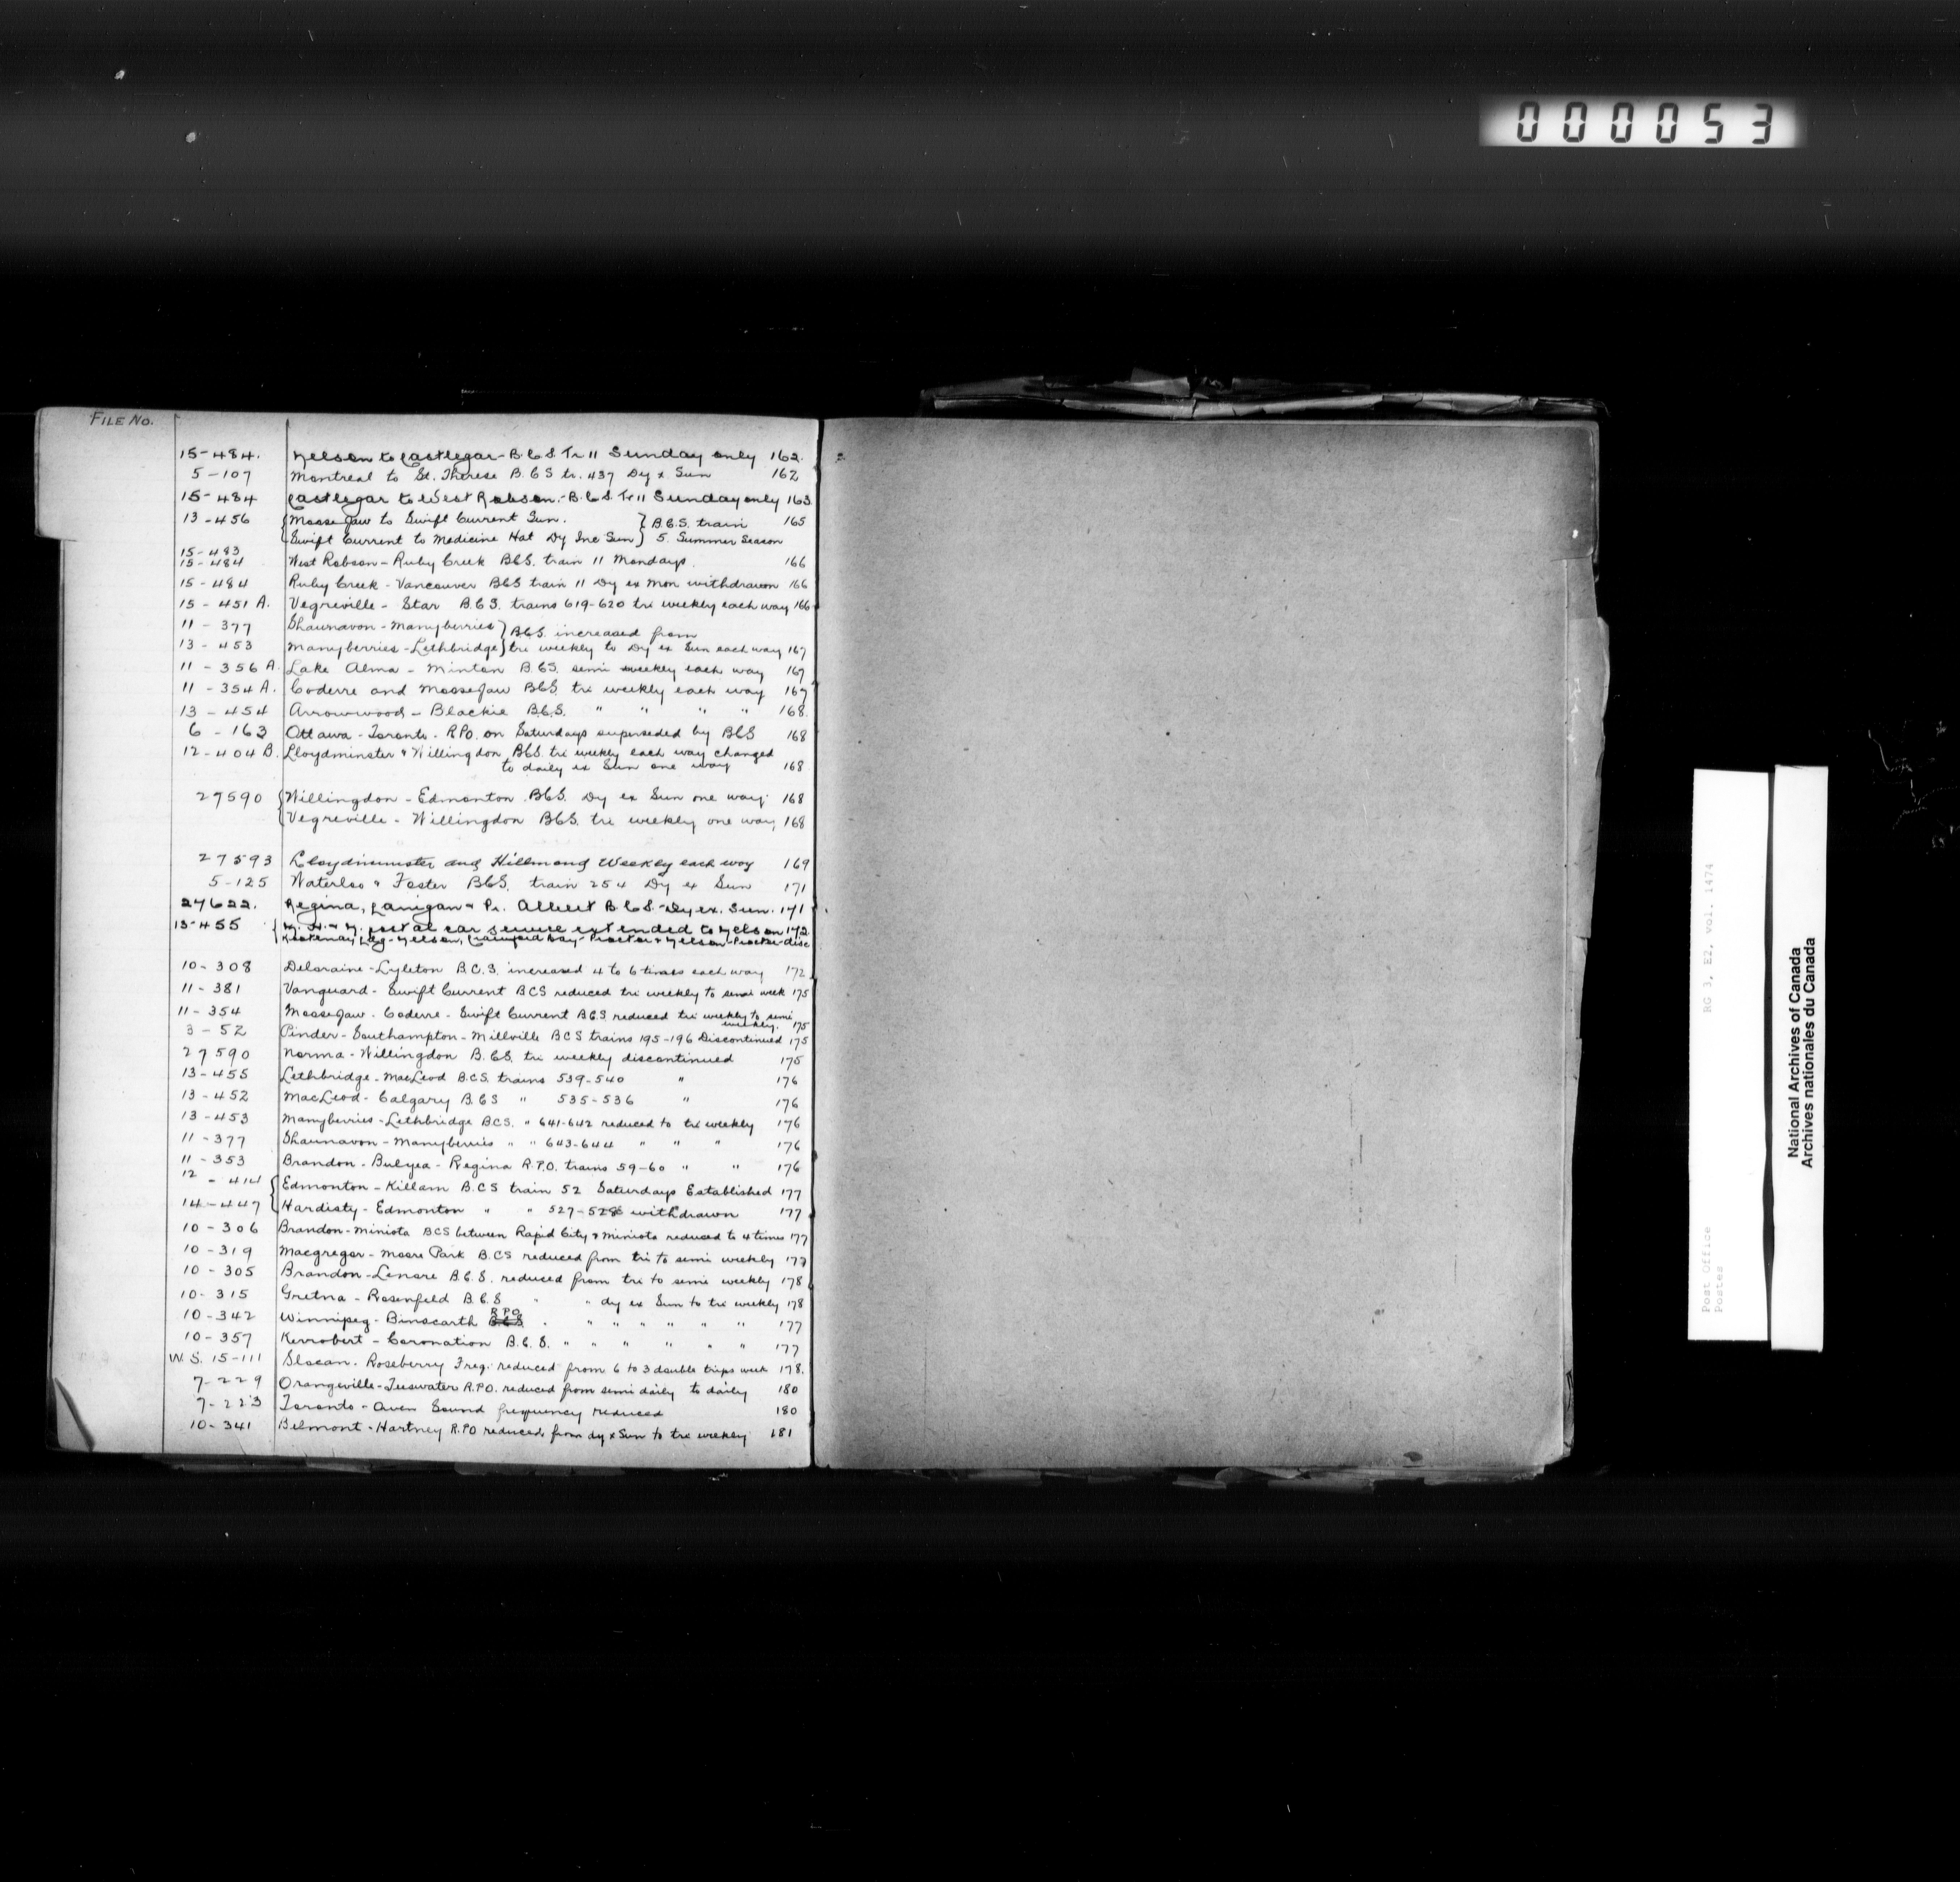 000053
FILE NO.
15-484. Nelson to Castlegar - B.C.S. Tr 11 Sunday only 162.
5-107 Montreal to St. Therese B.C.S tr. 437 Dy x Sun 162
15-484 Castlegar to West Robson. - B.C.S. Tr 11 Sunday only 163
13-456 { Moose Jaw to Swift Current Sun. } B.C.S. train 165
{ Swift Current to Medicine Hat Dy Inc Sun } 5. Summer Season
15-483
15-484 West Robson - Ruby Creek BCS. train 11 Mondays. 166
15-484 Ruby Creek - Vancouver BCS train 11 Dy ex Mon withdrawn 166
15-451 A. Vegreville - Star B.C.S. trains 619-620 tri weekly each way 166
11-377 Shaunavon - Manyberries } BCS. increased from
13-453 Manyberries - Lethbridge } tri weekly to Dy ex Sun each way 167
11-356 A. Lake Alma - Minton B.CS. semi weekly each way 167
11-354 A. Coderre and Moose Jaw BCS. tri weekly each way 167
13-454 Arrowwood - Blackie B.C.S. " " " " 168.
6-163 Ottawa - Toronto - RPO. on Saturdays superseded by BCS 168
12-404 B. Lloydminster & Willingdon BCS. tri weekly each way changed
to daily ex Sun one way 168
27590 { Willingdon - Edmonton BCS. Dy ex Sun one way. 168
{ Vegreville - Willingdon BCS. tri weekly one way, 168
27593 Lloydminster and Hillmond Weekly each way 169
5-125 Waterloo " Foster BCS. train 254 Dy ex Sun 171
27622. Regina, Lanigan & Pr. Albert B.C.S. - Dy ex. Sun. 171
13-455 { M. H. & N. postal car service extended to Nelson 172
Kootenay Ldg - Nelson, Crawford Bay - Procter & Nelson - Procter disc
10-308 Deloraine - Lyleton B.C.S. increased 4 to 6 times each way 172
11-381 Vanguard - Swift Current BCS reduced tri weekly to semi week 175
11-354 Moose Jaw - Coderre - Swift Current BCS reduced tri weekly to semi
weekly. 175
3-52 Pinder - Southampton - Millville BCS trains 195-196 Discontinued 175
27590 Norma - Willingdon B.CS. tri weekly discontinued 175
13-455 Lethbridge - MacLeod B.C.S. trains 539-540 " 176
13-452 MacLeod - Calgary B.CS " 535-536 " 176
13-453 Manyberries - Lethbridge BCS. " 641-642 reduced to tri weekly 176
11-377 Shaunavon - Manyberries " " 643-644 " " " 176
11-353 Brandon - Bulyea - Regina R.P.O. trains 59-60 " " 176
12-414 { Edmonton - Killam B.CS train 52 Saturdays Established 177
14-447 { Hardisty - Edmonton " " 527-528 withdrawn 177
10-306 Brandon - Miniota BCS between Rapid City & Miniota reduced to 4 times 177
10-319 Macgregor - Moore Park B.CS reduced from tri to semi weekly 177
10-305 Brandon - Lenore B.C.S. reduced from tri to semi weekly 178
10-315 Gretna - Rosenfeld B.C.S " " dy ex Sun to tri weekly 178
R.P.O.
10-342 Winnipeg - Binscarth BCS " " " " " " " 177
10-357 Kerrobert - Coronation B.C.S. " " " " " " 177
W.S. 15-111 Slocan - Roseberry Freq. reduced from 6 to 3 double trips week 178.
7-229 Orangeville - Teeswater R.P.O. reduced from semi daily to daily 180
7-223 Toronto - Owen Sound frequency reduced 180
10-341 Belmont - Hartney R.PO reduced from dy x Sun to tri weekly 181
Post Office RG 3, E2, vol. 1474
Postes
National Archives of Canada
Archives nationales du Canada